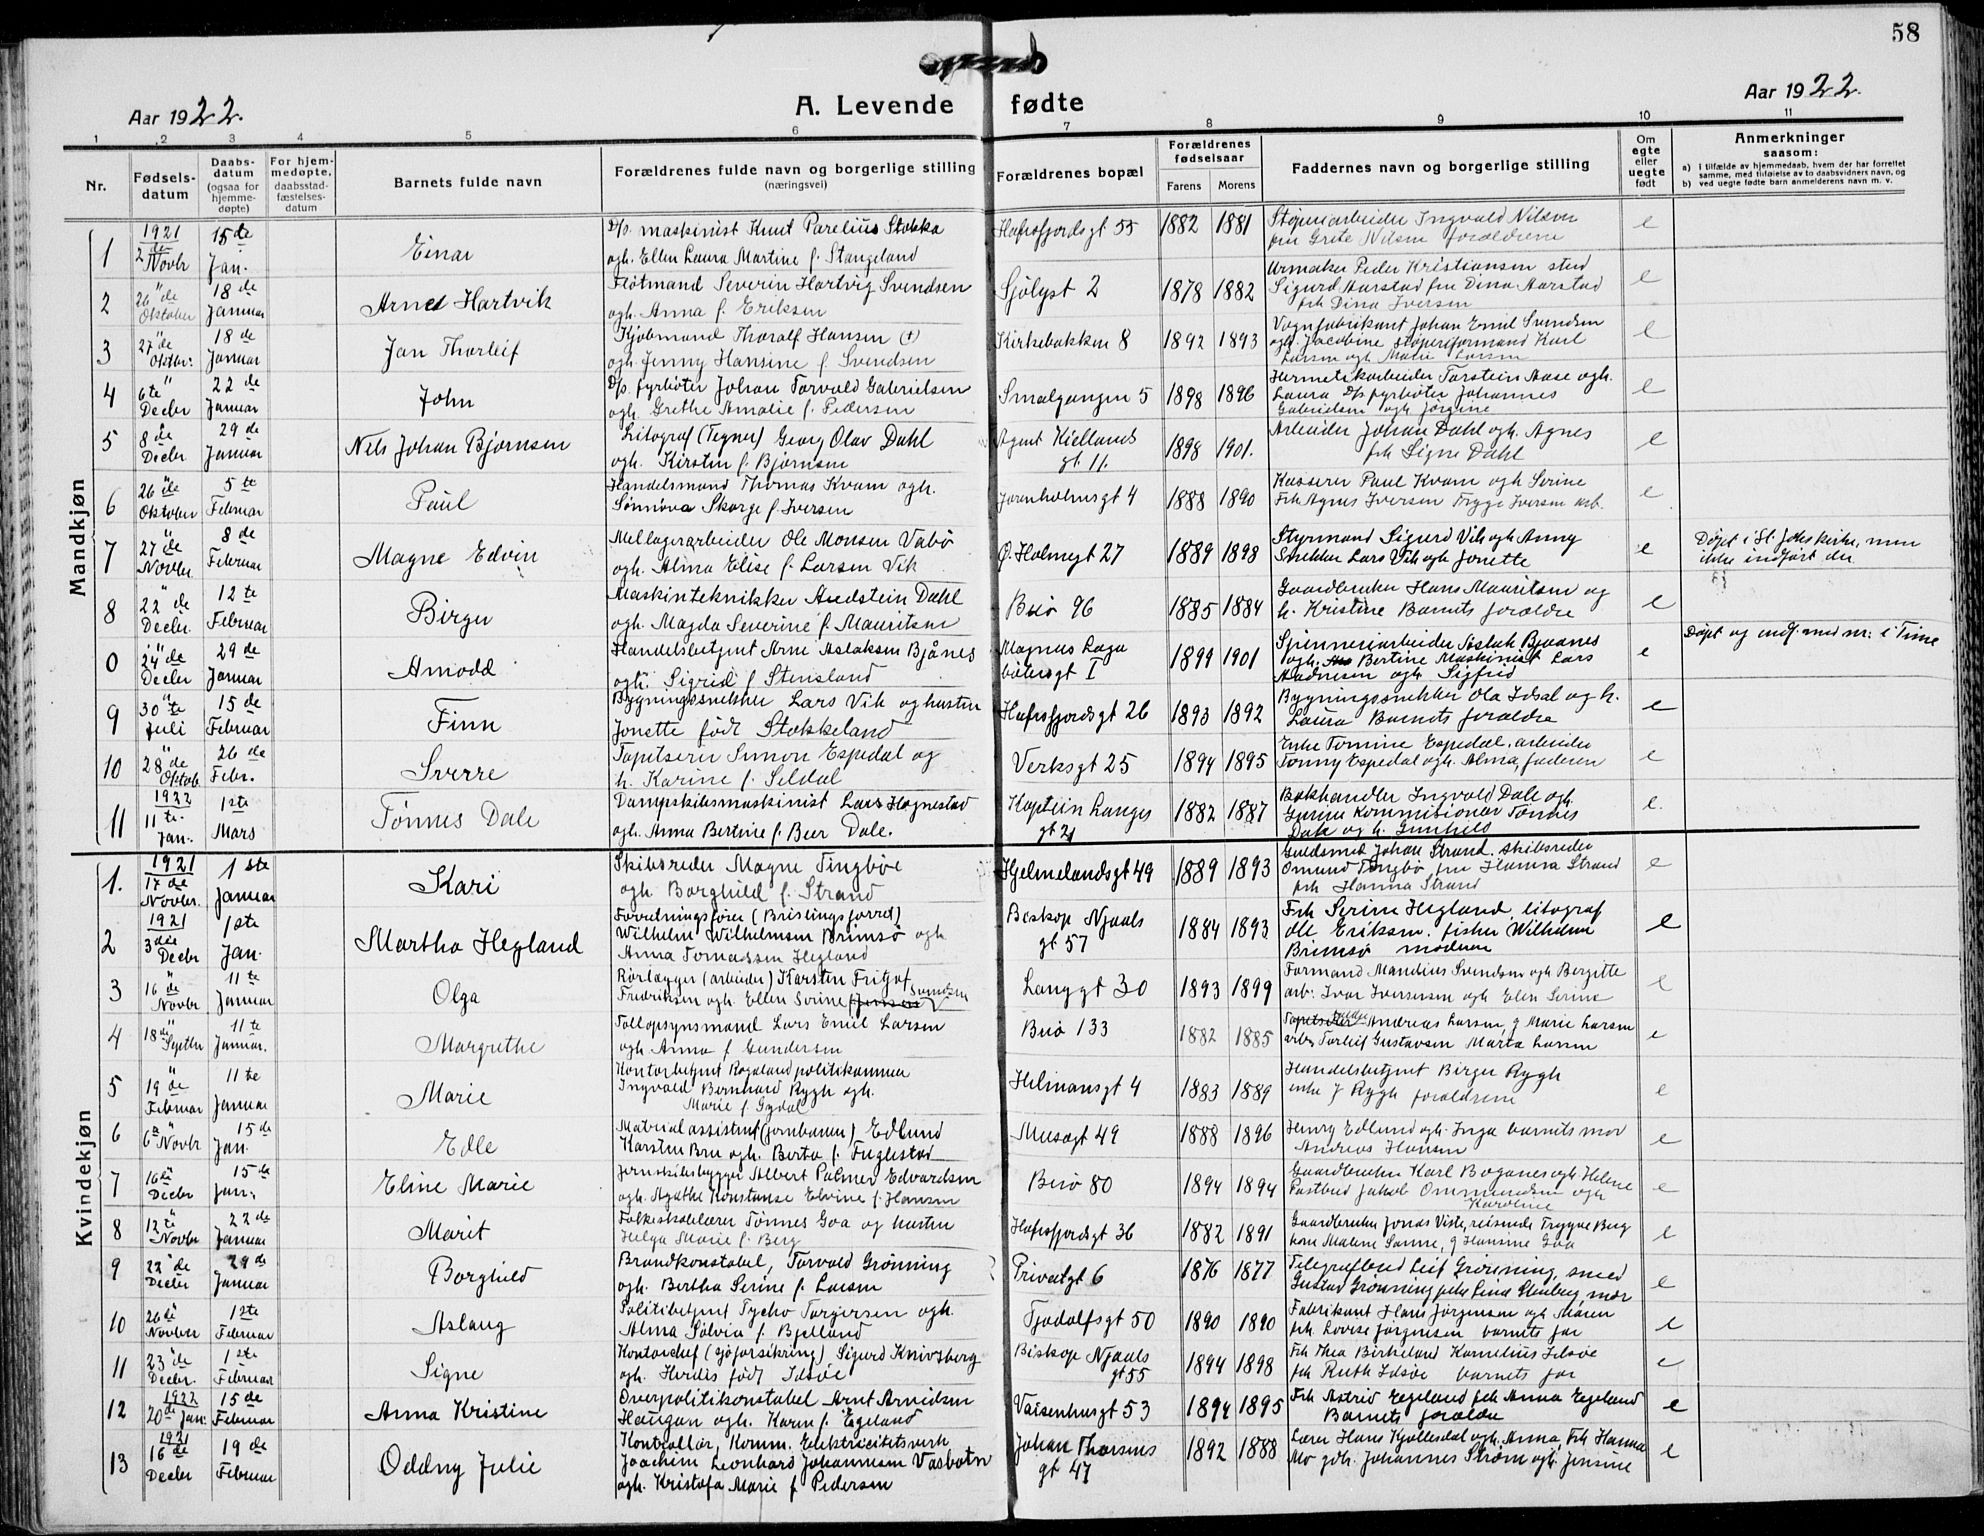 58
Aar 1922.
A. Levende fødte
Aar 1922.
1 2 3 4 5 6 7 8 9 10 11
Nr.
Fødsels-
datum
Daabs-
datum
(ogsaa for
hjemme-
døpte)
For hjem-
medøpte,
daabsstad-
fæstelses-
datum
Barnets fulde navn
Forældrenes fulde navn og borgerlige stilling
(næringsvei)
Forældrenes bopæl
Forældrenes
fødselsaar
Farens Morens
Faddernes navn og borgerlige stilling
Om
egte
eller
uegte
født
Anmerkninger
saasom:
a) i tilfælde av hjemmedaab, hvem der har forrettet
samme, med tilføielse av to daabsvidners navn, og
b) ved uegte fødte barn anmelderens navn m. v.
Mandkjøn
1 1921 2de Novbr 15de Jan. Einar
D/s. maskinist Knut Parelius Stokka
ogh. Ellen Laura Martine f. Stangeland
Hafrsfjordsgt 55 1882 1881
Støperiarbeider Ingvald Nilsen
fru Grete Nilsen forældrene e
2 26de Oktober 18de Januar Arne Hartvik
Fløtmand Severin Hartvig Svendsen
ogh. Anna f. Eriksen
Sjølyst 2 1878 1882
Urmaker Peder Kristiansen stud
Sigurd Aarstad fru Dina Aarstad
frk Dina Iversen e
3 27de Oktbr: 18de Januar Jan Thorleif
Kjøbmand Thoralf Hansen (+)
ogh. Jenny Hansine f. Svendsen
Kirkebakken 8 1892 1893
Vognfabrikant Johan Emil Svendsen
ogh. Jacobine støperiformand Karl
Larsen ogh Marie Larsen e
4 6te Decbr 22de Januar John
D/s fyrbøter Johan Torvald Gabrielsen
ogh. Grethe Amalie f. Pedersen
Smalgangen 5 1898 1896
Hermetikarbeider Torstein Aase ogh.
Laura D/s fyrbøter Johannes
Gabrielsen ogh Jørgine e
5 8de Decbr 29de Januar Nils Johan Bjørnsen
Litograf (Tegner) Georg Olav Dahl
ogh. Kirsten f. Bjørnsen
Agent Kiellands
gt. 11. 1898 1901.
Arbeider Johan Dahl ogh. Agnes
frk Signe Dahl e
6 26de Oktober 5te Februar Paul
Handelsmand Thomas Kvam ogh.
Sønnøva Skorge f. Iversen
Jorenholmsgt 4 1888 1890
Kasserer Paul Kvam ogh Serine
Frk Agnes Iversen Trygve Iversen arb. e
7 27de Novbr. 8de Februar Magne Edvin
Mellagerarbeider Ole Monsen Vabø
ogh. Alma Elise f. Larsen Vik
Ø. Holmegt 27 1889 1898
Styrmand Sigurd Vik ogh Anny
Snekker Lars Vik ogh Jonette e
Døpt i St. Joh.s kirke, men
ikke indført der
8 22de Decbr. 12te Februar Birger
Maskintekniker Audstein Dahl
ogh. Magda Severine f. Mauritsen
Buø 96 1885 1884
Gaardbruker Hans Mauritsen og
h. Kristine Barnets forældre e
0 24de Decbr 29de Januar Amodd
Handelsbetjent Arne Aslaksen Bjånes
ogh. Sigrid f Stensland
Magnus Laga
bøtersgt I 1899 1901
Spinneriarbeider Aslak Bjaanes
ogh. Bertine Maskinist Lars
Aadnesen ogh Sigfrid e
Døpt og indf. med nr. i Time
9 30te Juli 15de Februar Finn
Bygningssnekker Lars Vik og hustru
Jonette født Stokkeland
Hafrsfjordsgt 26 1893 1892
Bygningssnekker Ola Idsal og h.
Laura Barnets forældre e
10 28de Oktob. 26de Febr. Sverre
Tapetserer Simon Espedal og
h. Karine f. Seldal
Verksgt 25 1894 1895
Enke Tomine Espedal. arbeider
Tonny Espedal ogh. Alma, faderen e
11 1922 11te Jan. 1ste Mars Tønnes Dale
Dampskibsmaskinist Lars Høgnestad
ogh. Anna Bertine f. Beer Dale.
Kaptein Langes
gt 21 1882 1887
Bokhandler Ingvald Dale ogh.
Gurine Kommisionær Tønnes
Dale og h. Gunhild e.
Kvindekjøn
1. 1921 17de Novbr. 1ste Januar Kari
Skibsreder Magne Tingbøe
ogh. Borghild f. Strand
Hjelmelandsgt 49 1889 1893
Guldsmed Johan Strand. skibsreder
Omund Tingbø fru Hanna Strand
frk Hanna Strand e
2 1921 3die Decbr 1ste Jan. Martha Hegland
Forretningsfører (Brislingsforret)
Wilhelm Wilhelmsen Brimsø ogh
Anna Tomassen Hegland
Biskop Njaals
gt 57 1884 1893
Frk Serine Hegland, litograf
Ole Eriksen. fisker Wilhelm
Brimsø moderen e
3 16de Novbr. 11te Januar Olga
Rørlægger (arbeider) Karsten Fritjof
Fredriksen ogh. Ellen Serine f. Svendsen
Langgt 30 1893 1899
Formand Mandius Svendsen ogh Bergitte
arb: Ivar Iversen ogh Elen Serine e
4 18de Septbr 11te Januar. Margrethe
Tollopsynsmand Lars Emil Larsen
ogh Anna f Gundersen
Buø 133 1882 1885
Andreas Larsen, g Marie Larsen
Torleif Gustavsen Marta Larsen e
5 19de Februar 11te Januar Marie
Kontorbetjent Rogaland politikammer
Ingvald Bernhard Rygh ogh.
Marie f. Gydal
Helmansgt 4 1883 1889
Handelsbetjent Birger Rygh
enke J Rygh forældrene e
6 6te Novbr 15de Jan. Edle
Materialassistent (jernbanen) Edlund
Karsten Bru ogh. Berta f. Fuglestad
Musegt 49 1888 1896
Henry Edlund ogh. Inga barnets mor
Andreas Hansen e
7 16de Decbr 15de Jan. Eline Marie
Jernskibsbygger Albert Palmer Edvardsen
ogh. Agathe Konstanse Elvine f. Hansen
Buø 80 1894 1894
Gaardbruker Karl Boganes ogh. Helene
Postbud Jakob Ommundsen ogh
Karoline e
8 12te Novbr 22de Januar Marit
Folkeskolelærer Tønnes Goa og hustru
Helga Marie f. Berg
Hafrsfjordsgt 36 1882 1891
Gaardbruker Jonas Viste, reisende Trygve Berg
Malene Sømme, g Hansine Goa e
9 22de Decbr 29de Januar Borghild
Brandkonstabel, Torvald Grønning
ogh. Bertha Serine f. Larsen
Privatgt 6 1876 1877
Telegrafbud Leif Grønning, smed
Gustav Grønning, mor e
10 26de Novbr 1ste Februar Aslaug
Politibetjent Tycho Torgersen ogh.
Alma Solvia f. Bjelland
Tjodolfsgt 50 1890 1890
Fabrikant Hans Jørgensen ogh Maren
frk. Lovise Jørgensen barnets far e
11 23de Decbr. 1ste Februar Signe
Kontorchef (sjøforsikring) Sigurd Knivsberg
ogh. Herdis født Idsøe
Biskop Njaals
gt 55 1894 1898
Frk Thea Birkeland Kornelius Idsøe
frk Ruth Idsøe barnets far e
12 1922 20de Jan: 15de Februar Anna Kristine
Overpolitikonstabel Arnt Arnidsen
Haugan ogh. Karen f. Egeland
Vaisenhusgt 53 1894 1895
Frk Astrid Egeland frk Anna Egeland
Barnets forældre e
13 1921 16de Decbr 19de Februar Oddny Julie
Kontrollør, Komm. Elektricitetsverk
Joachim Leonhard Johannesen Vasbotn
ogh. Kristofa Marie f Pedersen
Johan Thorsens
gt 47 1892 1888
Lærer Hans Kjøllesdal ogh. Anna, Frk Hanna
Mo gdr. Johannes Strøm ogh. Jensine e